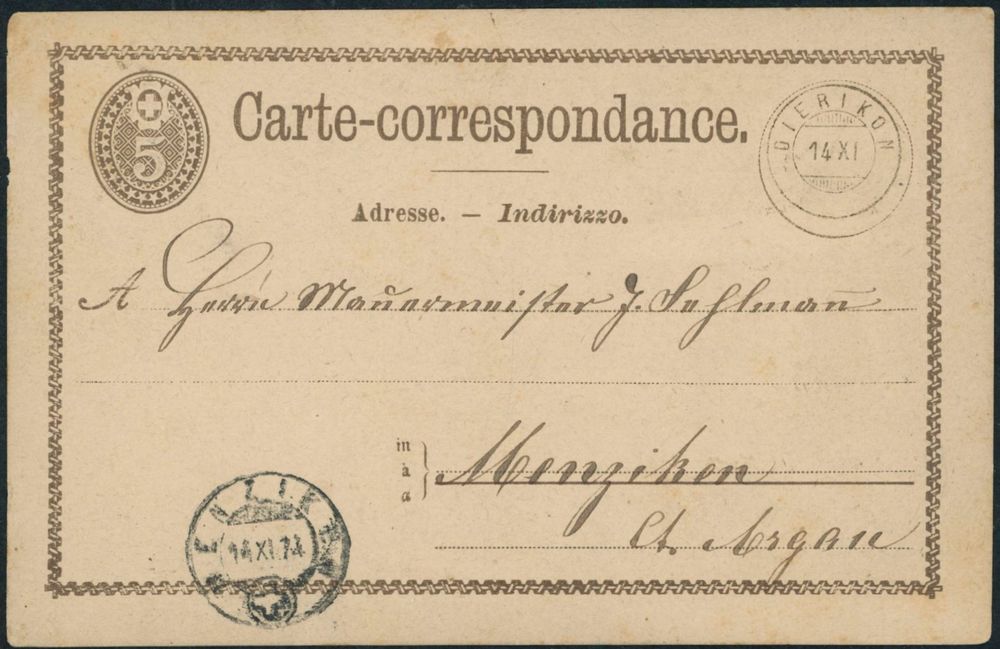 5
Carte-correspondance.
DIERIKON
14 XI
Adresse. — Indirizzo.
A Herrn Mauermeister J. Fehlmañ
in
à
a
Menziken
Ct. Argau
MENZIKEN
14 XI 74